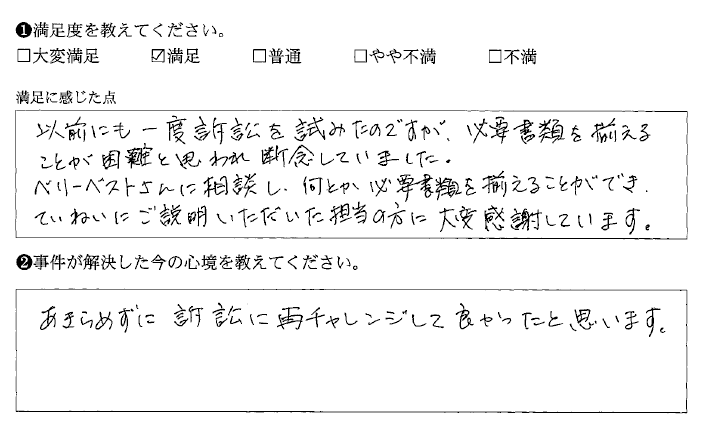 ❶満足度を教えてください。
□大変満足 ☑満足 □普通 □やや不満 □不満
満足に感じた点
以前にも一度訴訟を試みたのですが、必要書類を揃える
ことが困難と思われ断念していました。
ベリーベストさんに相談し、何とか必要書類を揃えることができ、
ていねいにご説明いただいた担当の方に大変感謝しています。
❷事件が解決した今の心境を教えてください。
あきらめずに訴訟に再チャレンジして良かったと思います。